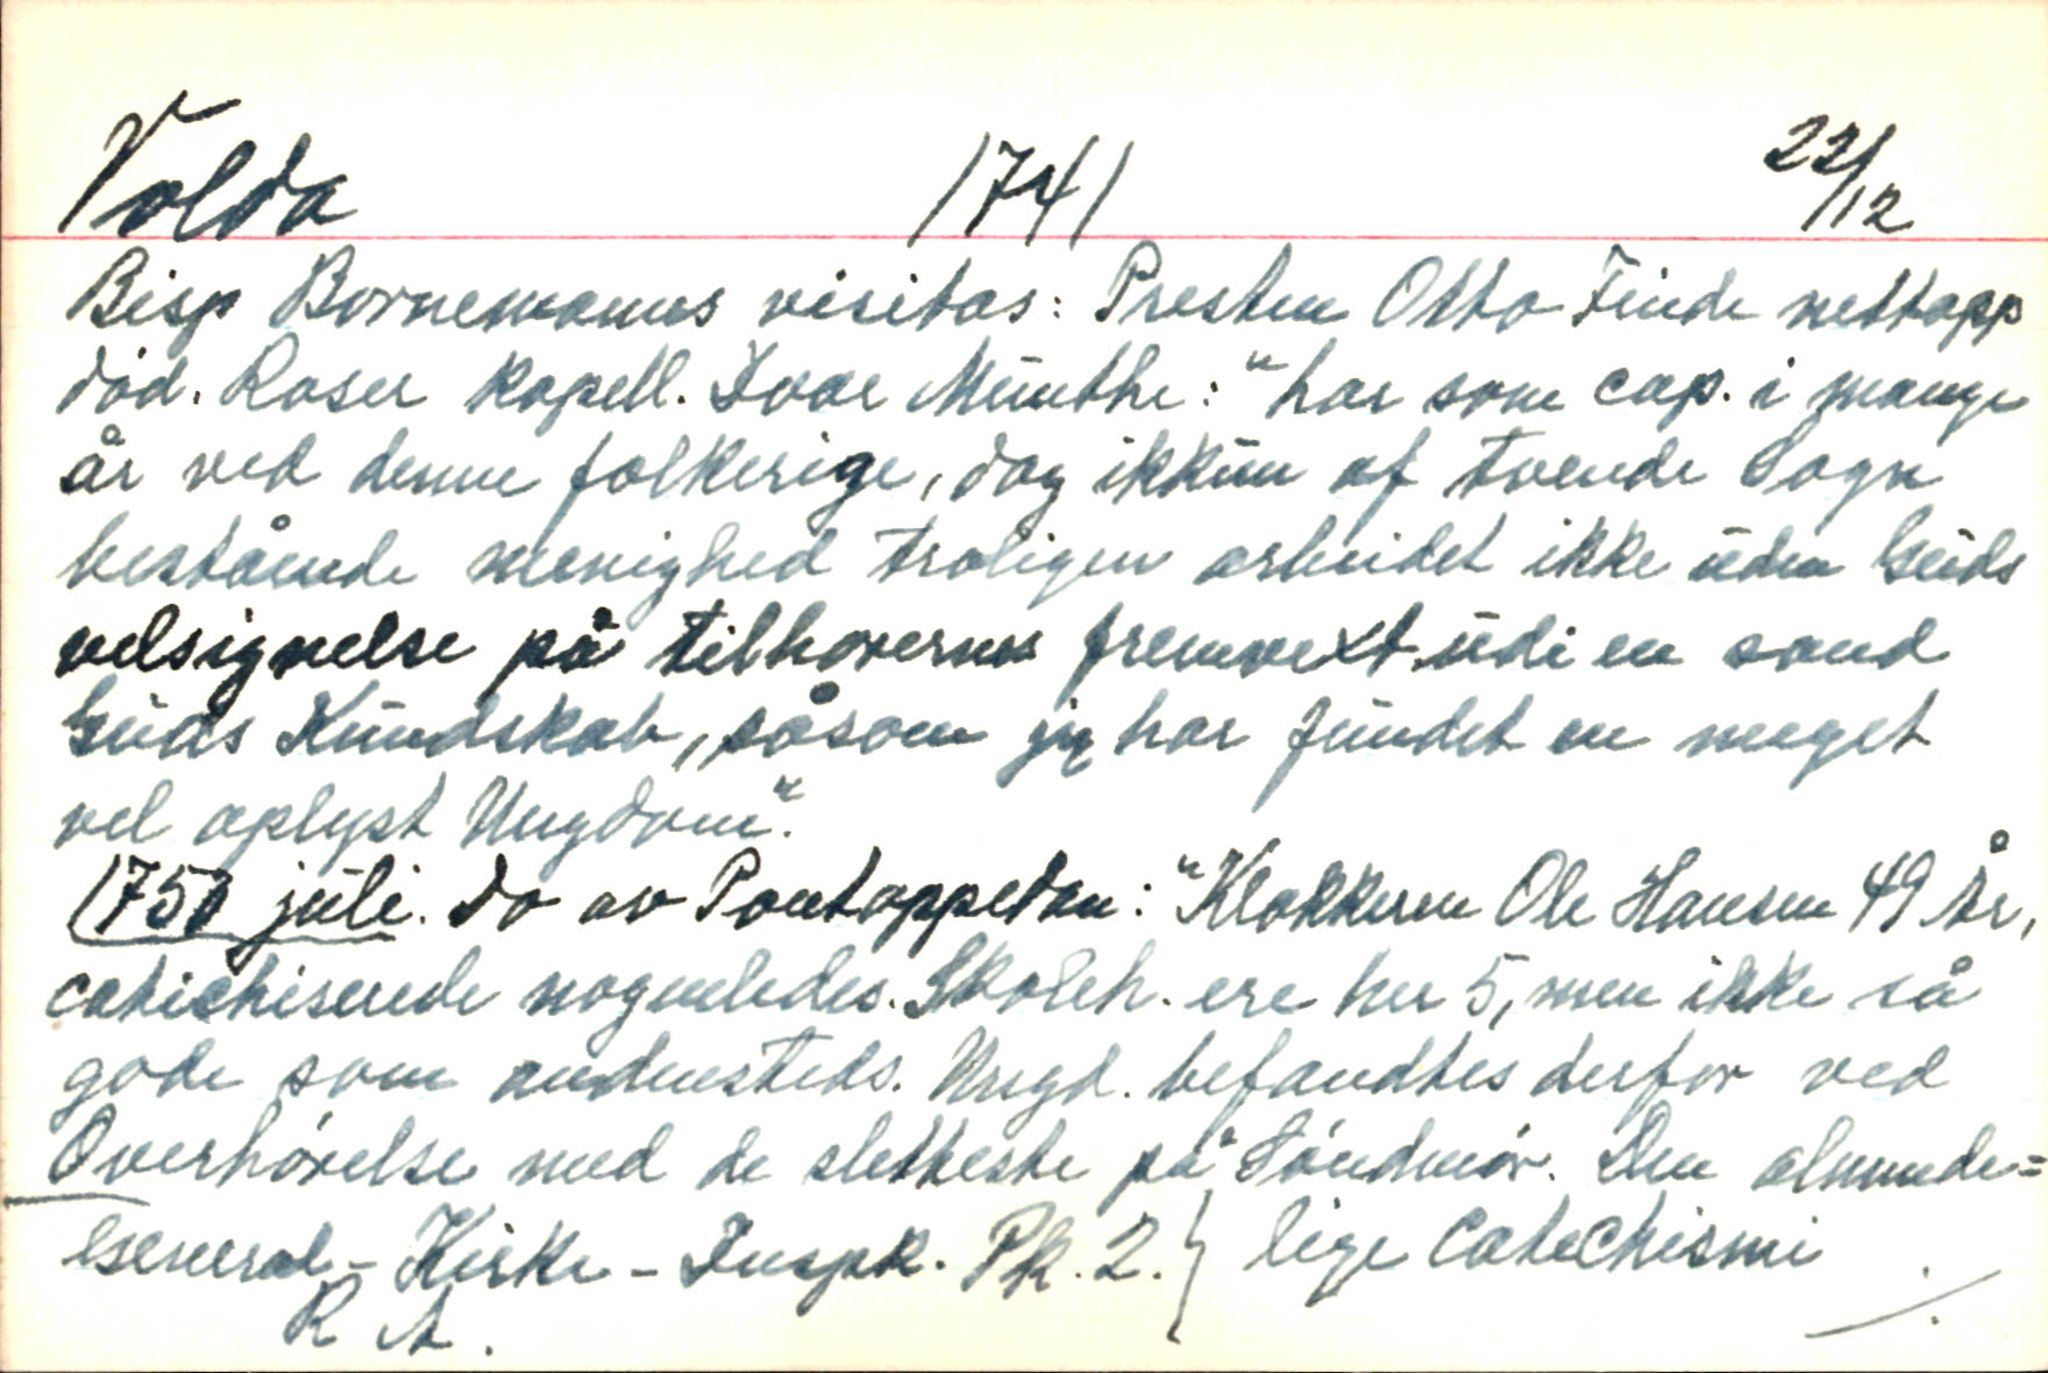 Volda 1741 22/12
Bisp Bornemanns visitas: Presten Otto Finde nettopp
död. Roser kapell. Ivar Münthe: "har som cap. i mange
år ved denne folkerige, dog ikkün af tvende Sogn
bestående menighed troligen arbeidet ikke üden Güds
velsignelse på tilhorernes fremvext üdi en sand
Güds Kündskab, såsom jeg har fündet en meget
vel oplyst Ungdom".
1750 jüli. do av Pontoppedan: "Klokkeren Ole Hansen 49 År,
catichiserede nogenledes. Skoleh. ere her 5, men ikke så
gode som andensteds. Ungd. befandtes derfor ved
Overhörelse med de sletteste på Söndmör. Den alminde=
lige Catechismi
General-Kirke-Inspk. Pk. 2.
R A.